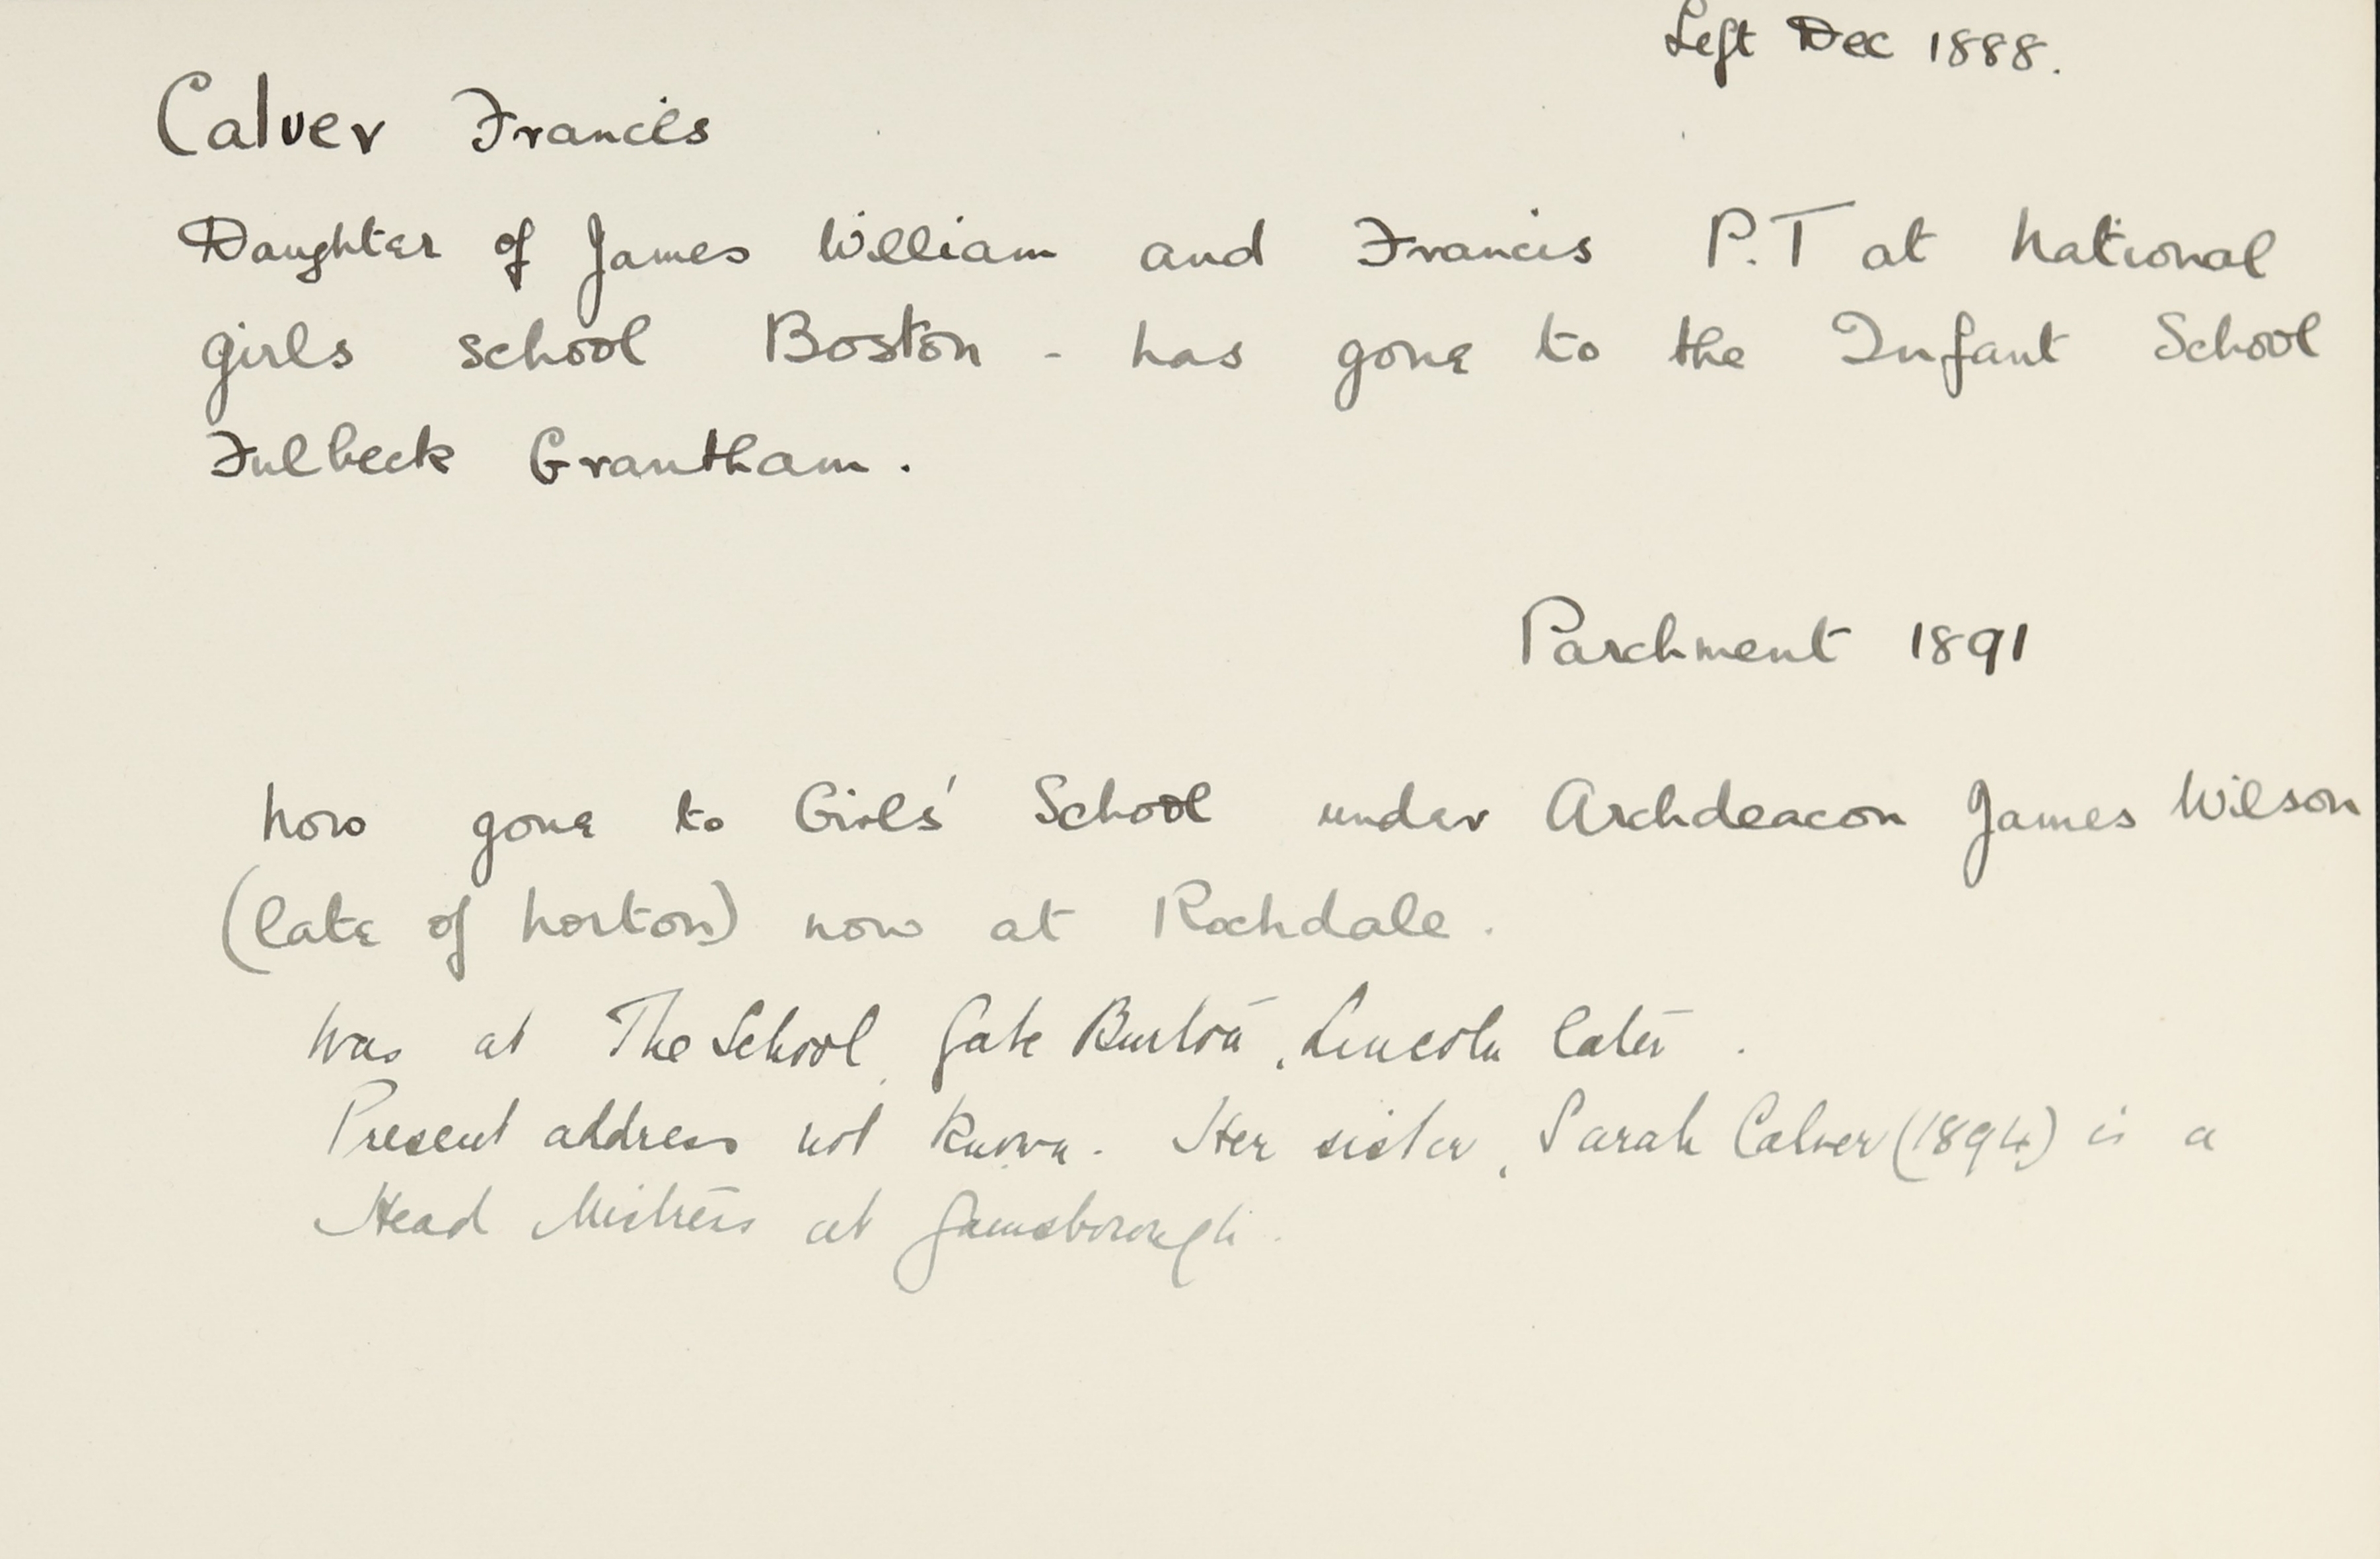 Left Dec 1888.
Calver Francis
Daughter of James William and Francis P.T at National
girls school Boston - has gone to the Infant School
Fulbeck Grantham.
Parchment 1891
Now gone to Girls' School under Archdeacon James Wilson
(late of Norton) now at Rochdale.
Was at The School, Gate Burton, Lincoln later.
Present address not known. Her sister, Sarah Calver (1894) is a
Head Mistress at Gainsborough.